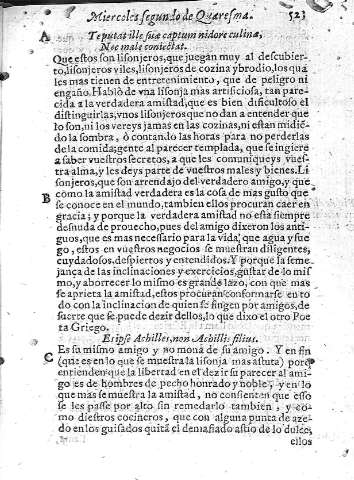 Miercoles segundo de Quaresma. 523
A Te putat ille suæ captum nidore culinæ,
Nec male coniectat.
Que estos son lisonjeros, que juegan muy al descubier-
to, lisonjeros viles, lisonjeros de cozina y brodio, los qua
les mas tienen de entretenimiento, que de peligro ni
engaño. Hablò de vna lisonja mas artificiosa, tan pare-
cida a la verdadera amistad, que es bien dificultoso el
distinguirlas, vnos lisonjeros que no dan a entender que
lo son, ni los vereys jamas en las cozinas, ni estan midiẽ-
do la sombra, ò contando las horas para no perderlas
de la comida; gente al parecer templada, que se ingiere
a saber vuestros secretos, a que les comuniqueys vues-
tra alma, y les deys parte de vuestros males y bienes. Li
sonjeros, que son arrendajo del verdadero amigo, y que
como la amistad verdadera es la cosa de mas gusto que
B se conoce en el mundo, tambien ellos procuran caer en
gracia; y porque la verdadera amistad no està siempre
desnuda de prouecho, pues del amigo dixeron los anti-
guos, que es mas necessario para la vida, que agua y fue
go, estos en vuestros negocios se muestran diligentes,
cuydadosos, despiertos y entendidos. Y porque la seme
jança de las inclinaciones y exercicios, gustar de lo mis-
mo, y aborrecer lo mismo es grande lazo, con que mas
se aprieta la amistad, estos procuran conformarse en to
do con la inclinacion de quien se fingen por amigos, de
suerte que se puede dezir dellos, lo que dixo el otro Poe
ta Griego.
Es ipse Achilles, non Achillis filius.
C Es su mismo amigo y no mona de su amigo. Y en fin
(que es en lo que se muestra la lisonja mas astuta) porq̃
entienden que la libertad en el dezir su parecer al ami-
go es de hombres de pecho honrado y noble, y en lo
que mas se muestra la amistad, no consienten que esso
se les passe por alto sin remedarlo tambien, y co-
mo diestros cocineros, que con alguna punta de aze-
do en los guisados quitã el demasiado astio de lo dulce,
ellos